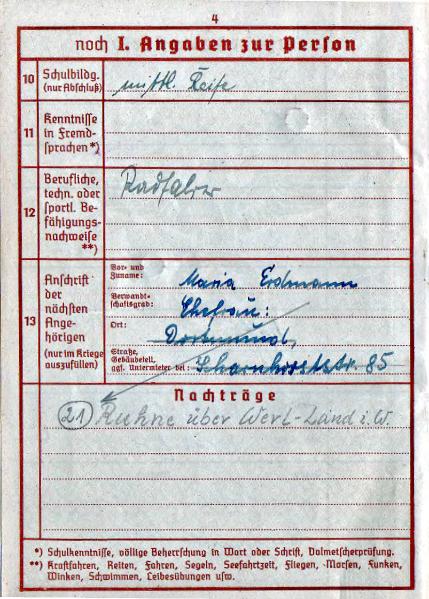 4
noch I. Angaben zur Person
10 Schulbildg. (nur Abschluß) mittl. Reife
11 Kenntnisse in Fremdsprachen*)
12 Berufliche, techn. oder sportl. Befähigungsnachweise **) Radfahrer
13 Anschrift der nächsten Angehörigen (nur im Kriege auszufüllen)
Vor- und Zuname: Maria Erdmann
Verwandtschaftsgrad: Ehefrau:
Ort: Dortmund,
Straße, Gebäudeteil, ggf. Untermieter bei: Scharnhorststr. 85
Nachträge
21 Ruhne über Werl-Land i.W.
*) Schulkenntnisse, völlige Beherrschung in Wort oder Schrift, Dolmetscherprüfung.
**) Kraftfahren, Reiten, Fahren, Segeln, Seefahrtzeit, Fliegen, Morsen, Funken,
Winken, Schwimmen, Leibesübungen usw.